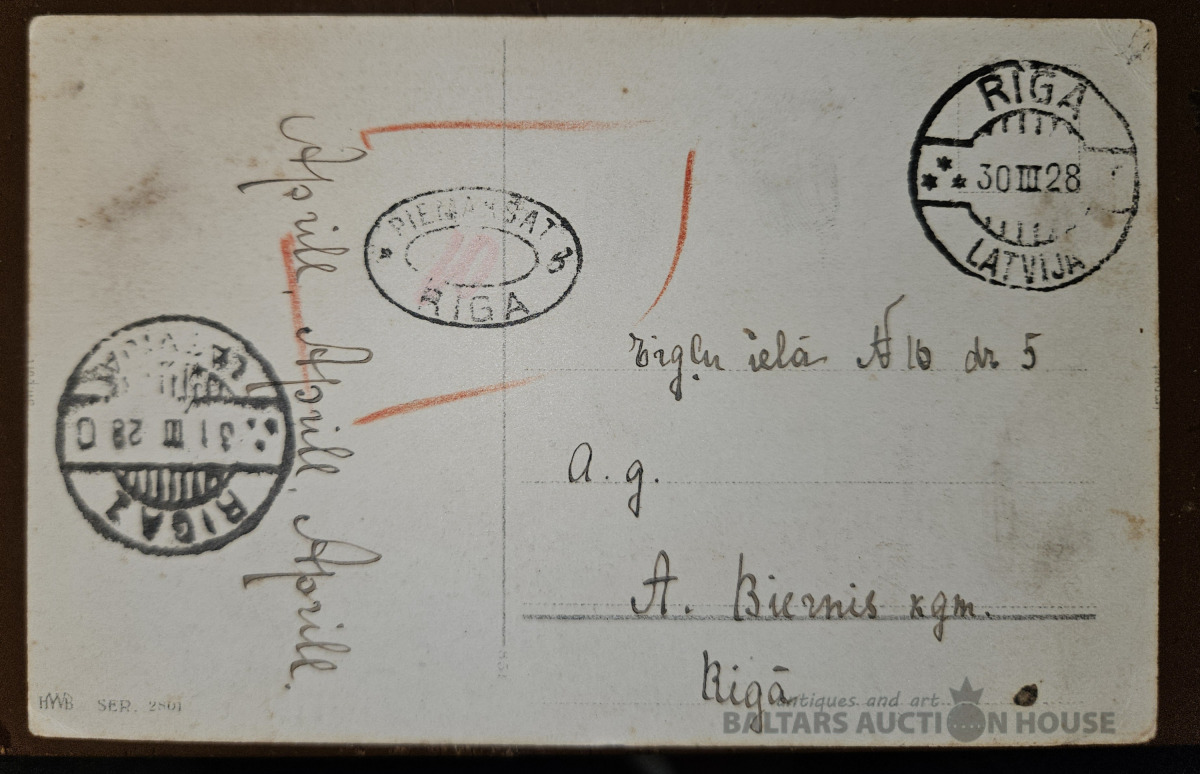 RIGA
30 III 28
LATVIJA
PIEMAKSAT
RIGA
Aprill, Aprill, Aprill.
31 III 28
RIGA 1
ielā № 16 dz 5
A. g.
A. Biernis kgm.
Rigā
HWB SER. 2801
antiques and art
BALTARS AUCTION HOUSE